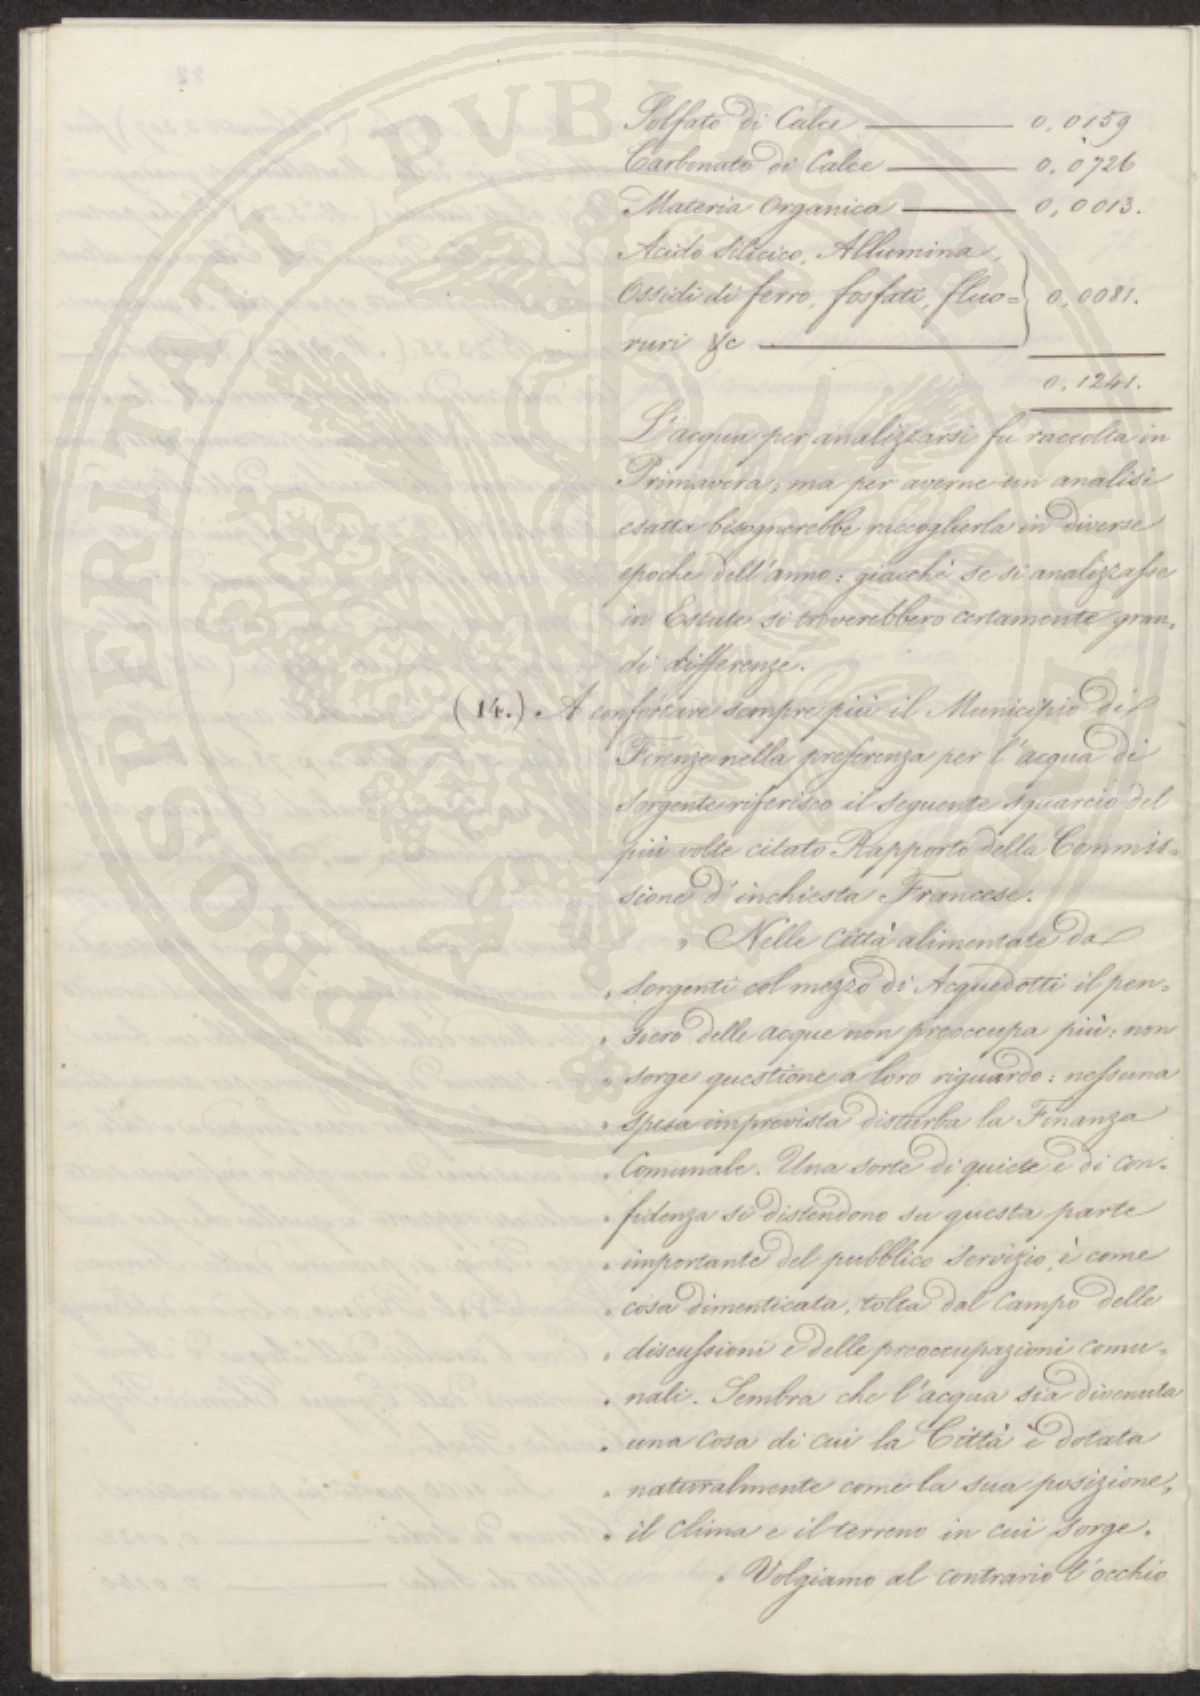 Solfato di Calce ——— 0,0159
Carbonato di Calce ——— 0,0726
Materia Organica ——— 0,0013.
Acido Silicico, Allumina,
Ossidi di ferro, fosfati, fluo= 0,0081.
ruri &c ———
0,1241.
L'acqua per analizzarsi fu raccolta in
Primavera, ma per averne un analisi
esatta bisognerebbe raccoglierla in diverse
epoche dell'anno: giacchè se si analizzasse
in Estate si troverebbero certamente gran=
di differenze.
(14.) A confortare sempre più il Municipio di
Firenze nella preferenza per l'acqua di
sorgente riferisco il seguente squarcio del
più volte citato Rapporto della Commis=
sione d'inchiesta Francese.
" Nelle Città alimentate da
" sorgenti col mezzo di Acquedotti il pen=
" siero delle acque non preoccupa più: non
" sorge questione a loro riguardo: nessuna
" spesa imprevista disturba la Finanza
" Comunale. Una sorte di quiete e di con=
" fidenza si distendono su questa parte
" importante del pubblico servizio, è come
" cosa dimenticata, tolta dal campo delle
" discussioni e delle preoccupazioni comu=
" nali. Sembra che l'acqua sia divenuta
" una cosa di cui la Città è dotata
" naturalmente come la sua posizione,
" il clima e il terreno in cui sorge.
" Volgiamo al contrario l'occhio
PROSPERITATI PUBLICAE